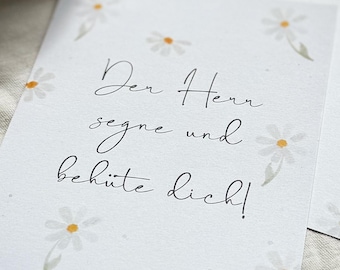 Der Herr
segne und
behüte dich!